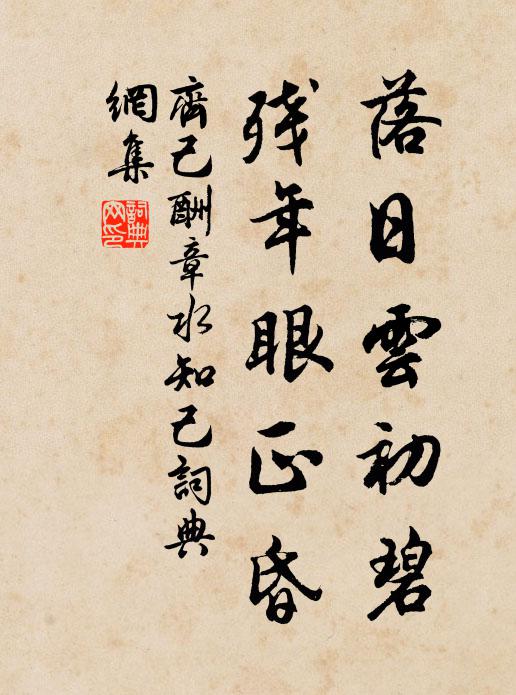 落日雲初碧
残年眼正昏
齊己酬章水知己詞典
網集
詞典
网印